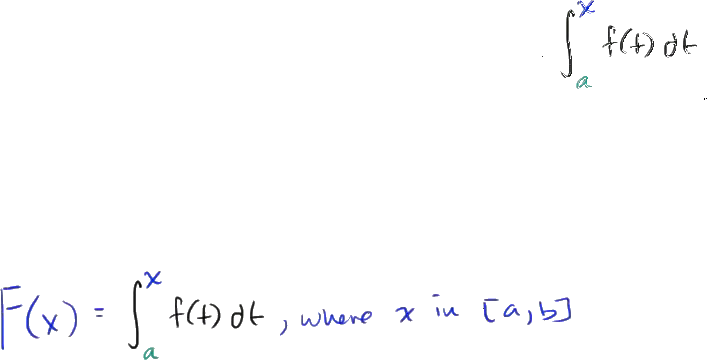 ∫ₐˣ f(t) dt
F(x) = ∫ₐˣ f(t) dt, where x in [a, b]